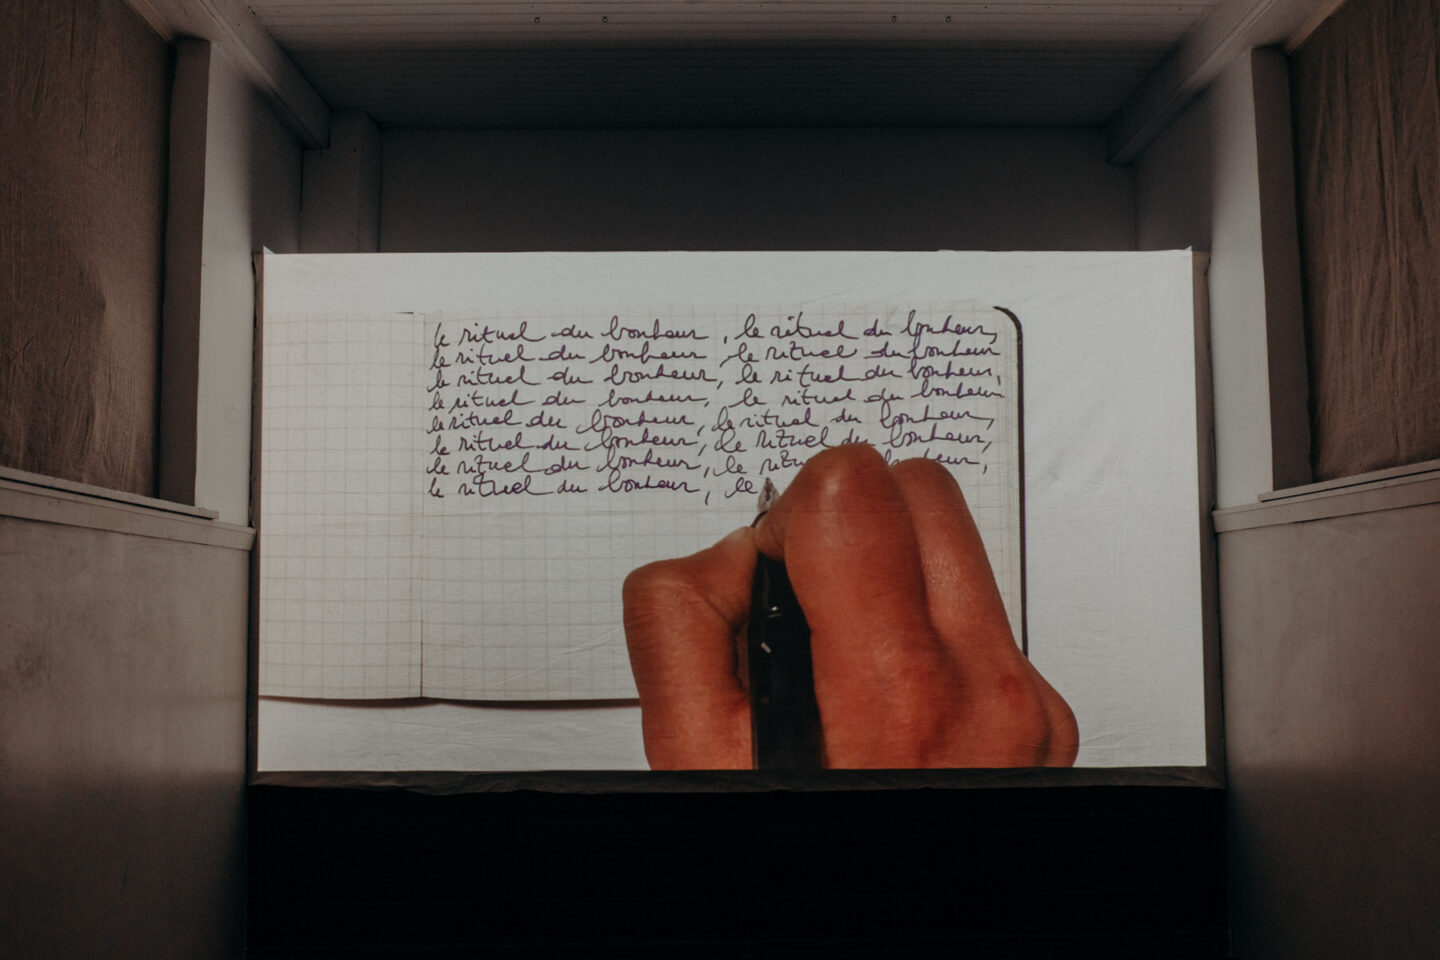 le rituel du bonheur, le rituel du bonheur,
le rituel du bonheur, le rituel du bonheur
le rituel du bonheur, le rituel du bonheur,
le rituel du bonheur, le rituel du bonheur
le rituel du bonheur, le rituel du bonheur,
le rituel du bonheur, le rituel du bonheur,
le rituel du bonheur, le
le rituel du bonheur, le